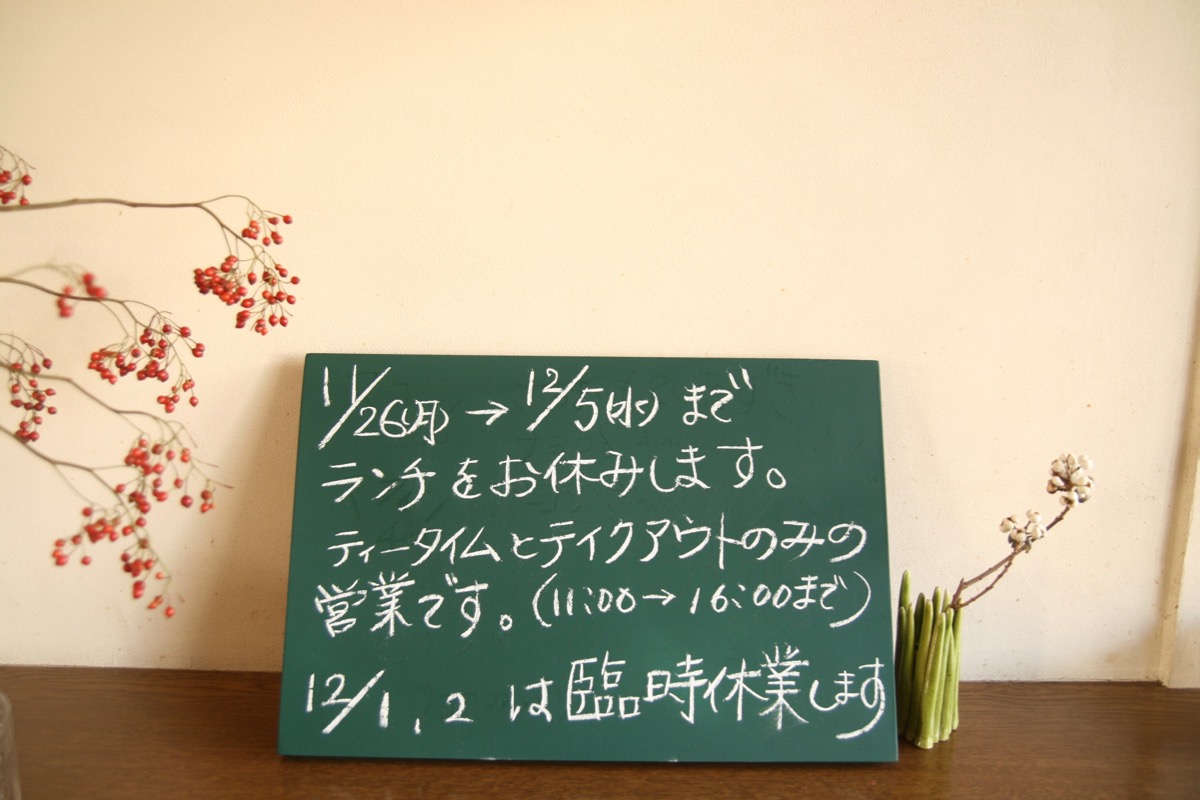 11/26(月)→12/5(水)まで
ランチをお休みします。
ティータイムとテイクアウトのみの
営業です。(11:00→16:00まで)
12/1,2は臨時休業します